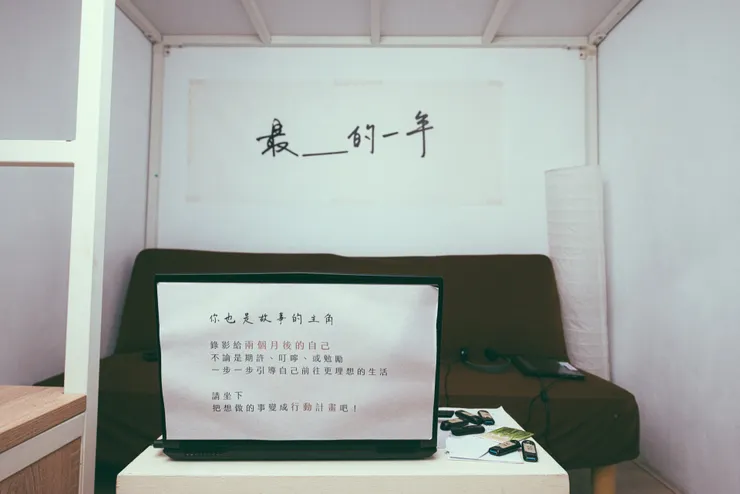 最__的一年
你也是故事的主角
錄影給兩個月後的自己
不論是期許、叮嚀、或勉勵
一步一步引導自己前往更理想的生活
請坐下
把想做的事變成行動計畫吧！